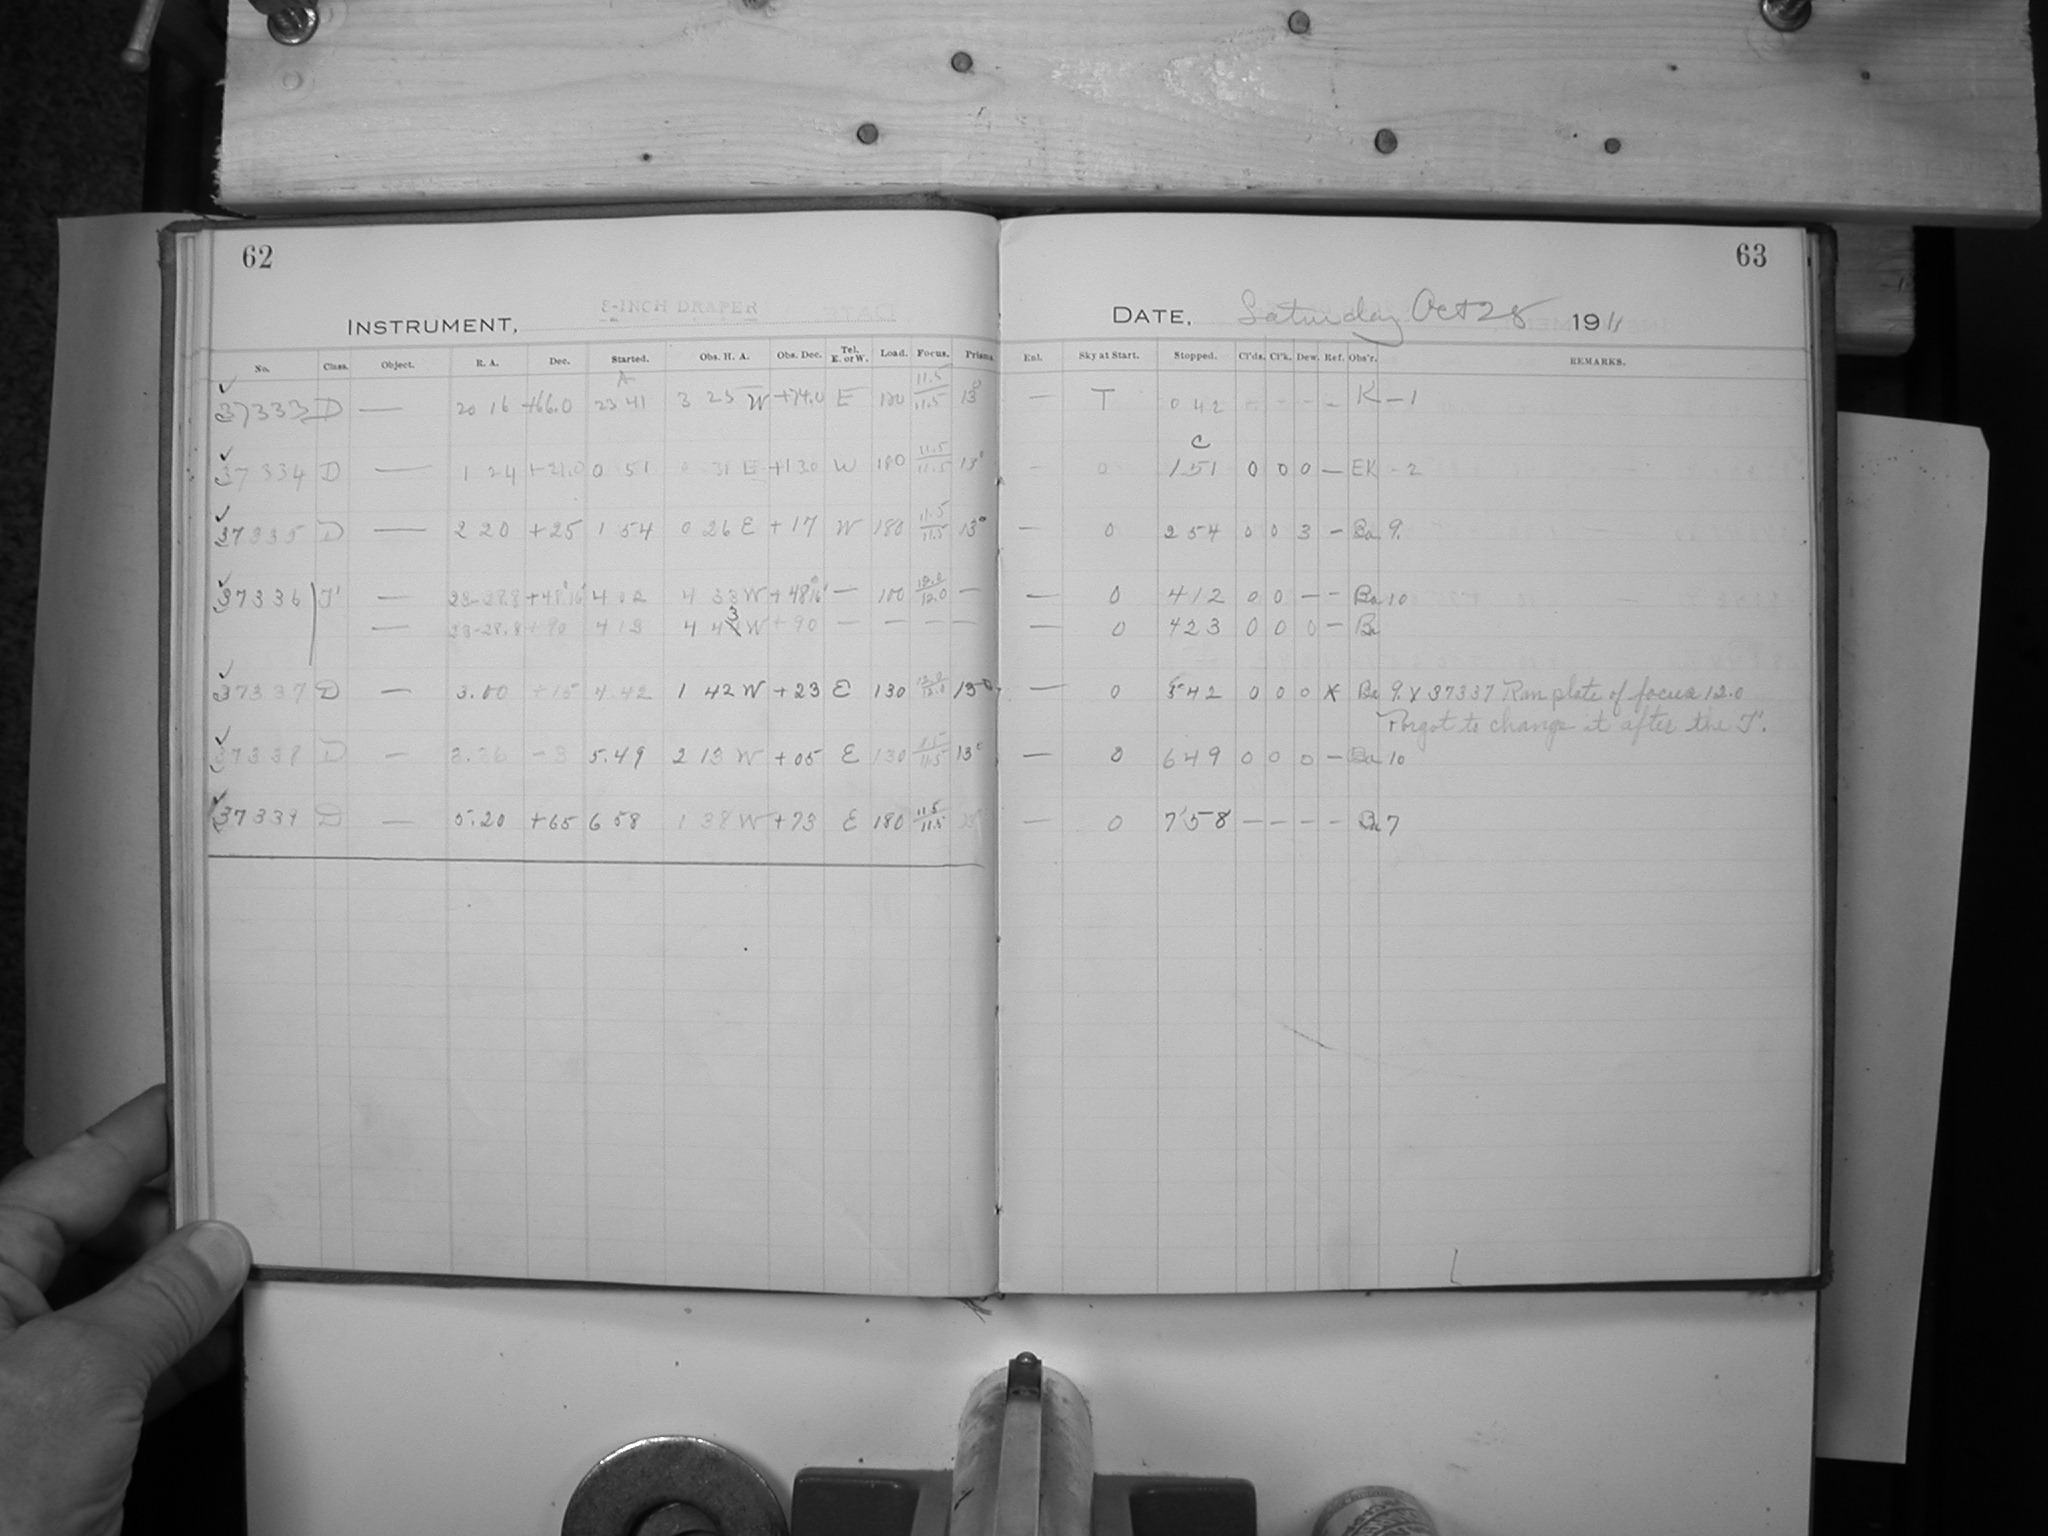 62
INSTRUMENT, 8-INCH DRAPER
No. Class. Object. R. A. Dec. Started. Obs. H. A. Obs. Dec. Tel. E. or W. Load. Focus. Prisms.
37333 D — 20 16 +66.0 23 41 3 25 W +74.0 E 180 11.5/11.5 13°
37334 D — 1 24 +21.0 0 51 0 31 E +13.0 W 180 11.5/11.5 13°
37335 D — 2 20 +25 1 54 0 26 E +17 W 180 11.5/11.5 13°
37336 I' — 23-28.8 +48°16' 4 02 4 33 W +48°16' — 100 12.0/12.0 —
— 23-28.8 +90 4 13 4 43 W +90 — — — —
37337 D — 3.00 +15 4.42 1 42 W +23 E 130 12.0/12.0 13°
37338 D — 3.36 -3 5.49 2 13 W +05 E 130 11.5/11.5 13°
37339 D — 5.20 +65 6 58 1 38 W +73 E 180 11.5/11.5 13°
63
DATE, Saturday Oct 28 1911
Enl. Sky at Start. Stopped. Cl'ds. Cl'k. Dew. Ref. Obs'r. REMARKS.
— T 0 42 - - - - K-1
C
— 0 1 51 0 0 0 — EK - 2
— 0 2 54 0 0 3 - Ba 9.
— 0 4 12 0 0 — - Ba 10
— 0 4 23 0 0 0 - Ba
— 0 5 42 0 0 0 X Ba 9. X 37337 Ran plate of focus 12.0
Forgot to change it after the I'.
— 0 6 49 0 0 0 - Ba 10
— 0 7 58 — — — - Ba 7